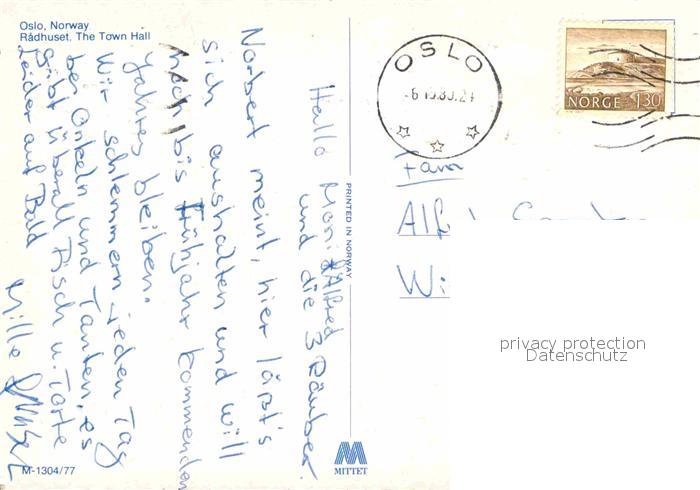 Oslo, Norway
Rådhuset. The Town Hall
Hallo
Moni & Alfred
und die 3 Räuber.
Norbert meint, hier läßt's
sich aushalten und will
noch bis Frühjahr kommenden
Jahres bleiben.
Wir schlemmern jeden Tag
bei Onkeln und Tanten, es
gibt überall Fisch u. Torte
Leider auf Bald
M-1304/77
PRINTED IN NORWAY
MITTET
OSLO
NORGE 1,30
Fam
privacy protection
Datenschutz